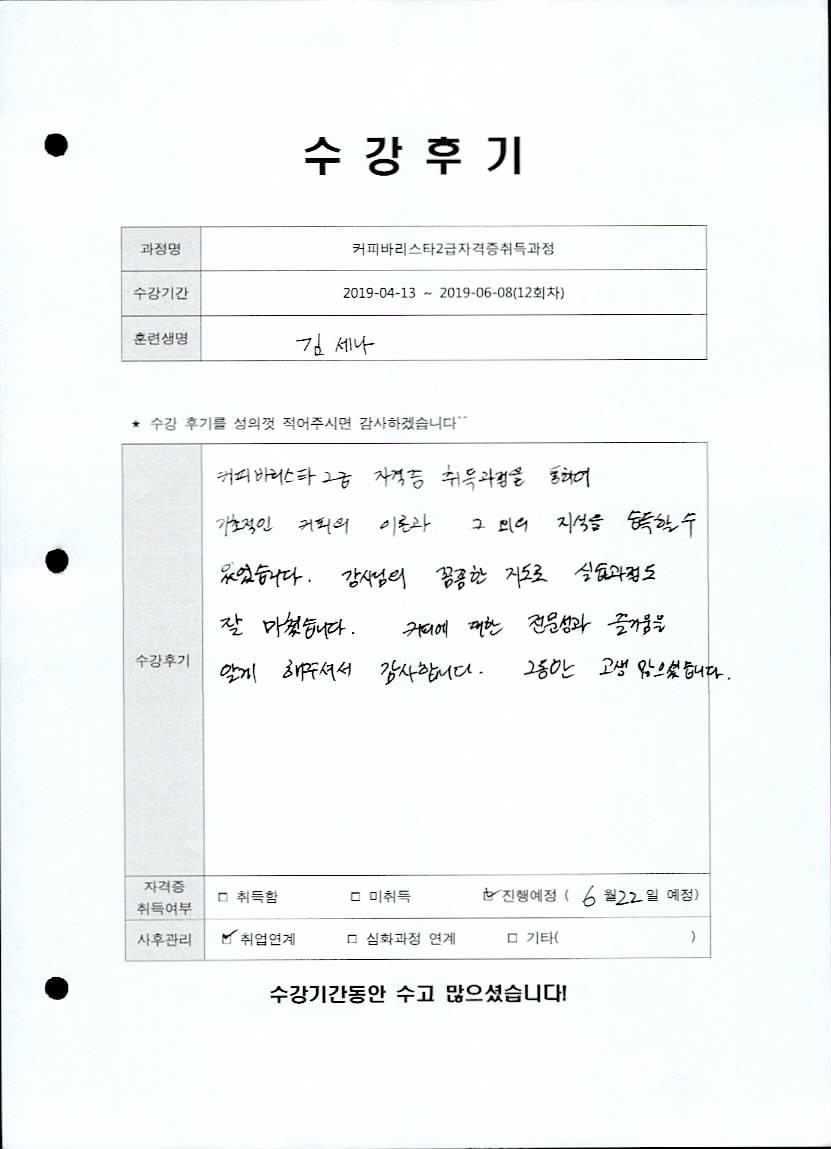 수 강 후 기
과정명 커피바리스타2급자격증취득과정
수강기간 2019-04-13 ~ 2019-06-08(12회차)
훈련생명 김 세나
★ 수강 후기를 성의껏 적어주시면 감사하겠습니다^^
수강후기
커피바리스타 2급 자격증 취득과정을 통하여
기초적인 커피의 이론과 그 외의 지식을 습득할 수
있었습니다. 강사님의 꼼꼼한 지도로 실습과정도
잘 마쳤습니다. 커피에 대한 전문성과 즐거움을
알게 해주셔서 감사합니다. 그동안 고생 많으셨습니다.
자격증 취득여부 □ 취득함 □ 미취득 ☑ 진행예정 ( 6 월 22 일 예정)
사후관리 ☑ 취업연계 □ 심화과정 연계 □ 기타( )
수강기간동안 수고 많으셨습니다!